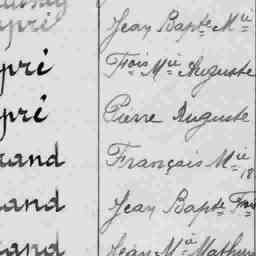 pri Jean Bapte Mie
pri Fçois Mie Auguste
pri Pierre Auguste
rand François Mie
18
and Jean Bapte Frçois
and Jean Mie Mathurin